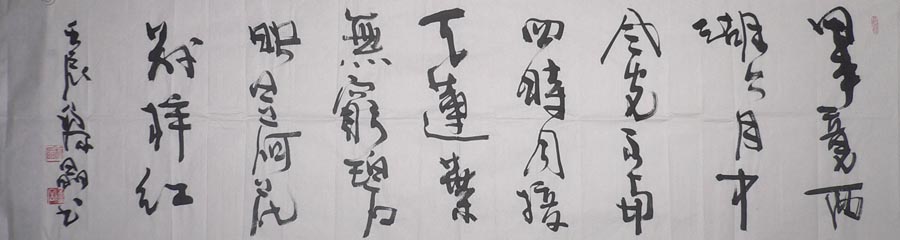 畢竟西
湖六月中
风光不与
四時同接
天蓮葉
無窮碧
映日荷花
别样红
壬辰 书